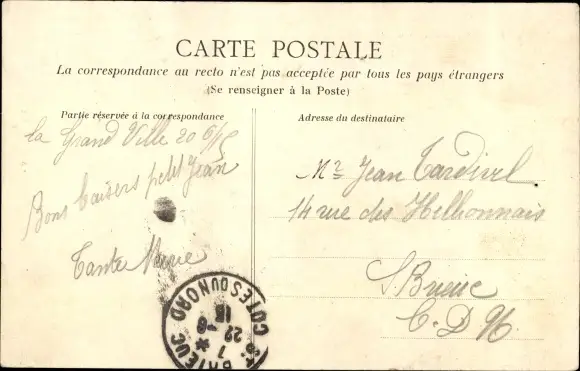 CARTE POSTALE
La correspondance au recto n'est pas acceptée par tous les pays étrangers
(Se renseigner à la Poste)
Partie réservée à la correspondance
la Grand Ville 20 6/15
Bons baisers petit Jean
Tante Marie
Adresse du destinataire
Mr Jean Tardivel
14 rue des Hillionnais
S. Brieuc
C. D N.
ST BRIEUC
COTES DU NORD
7
22 -6
15